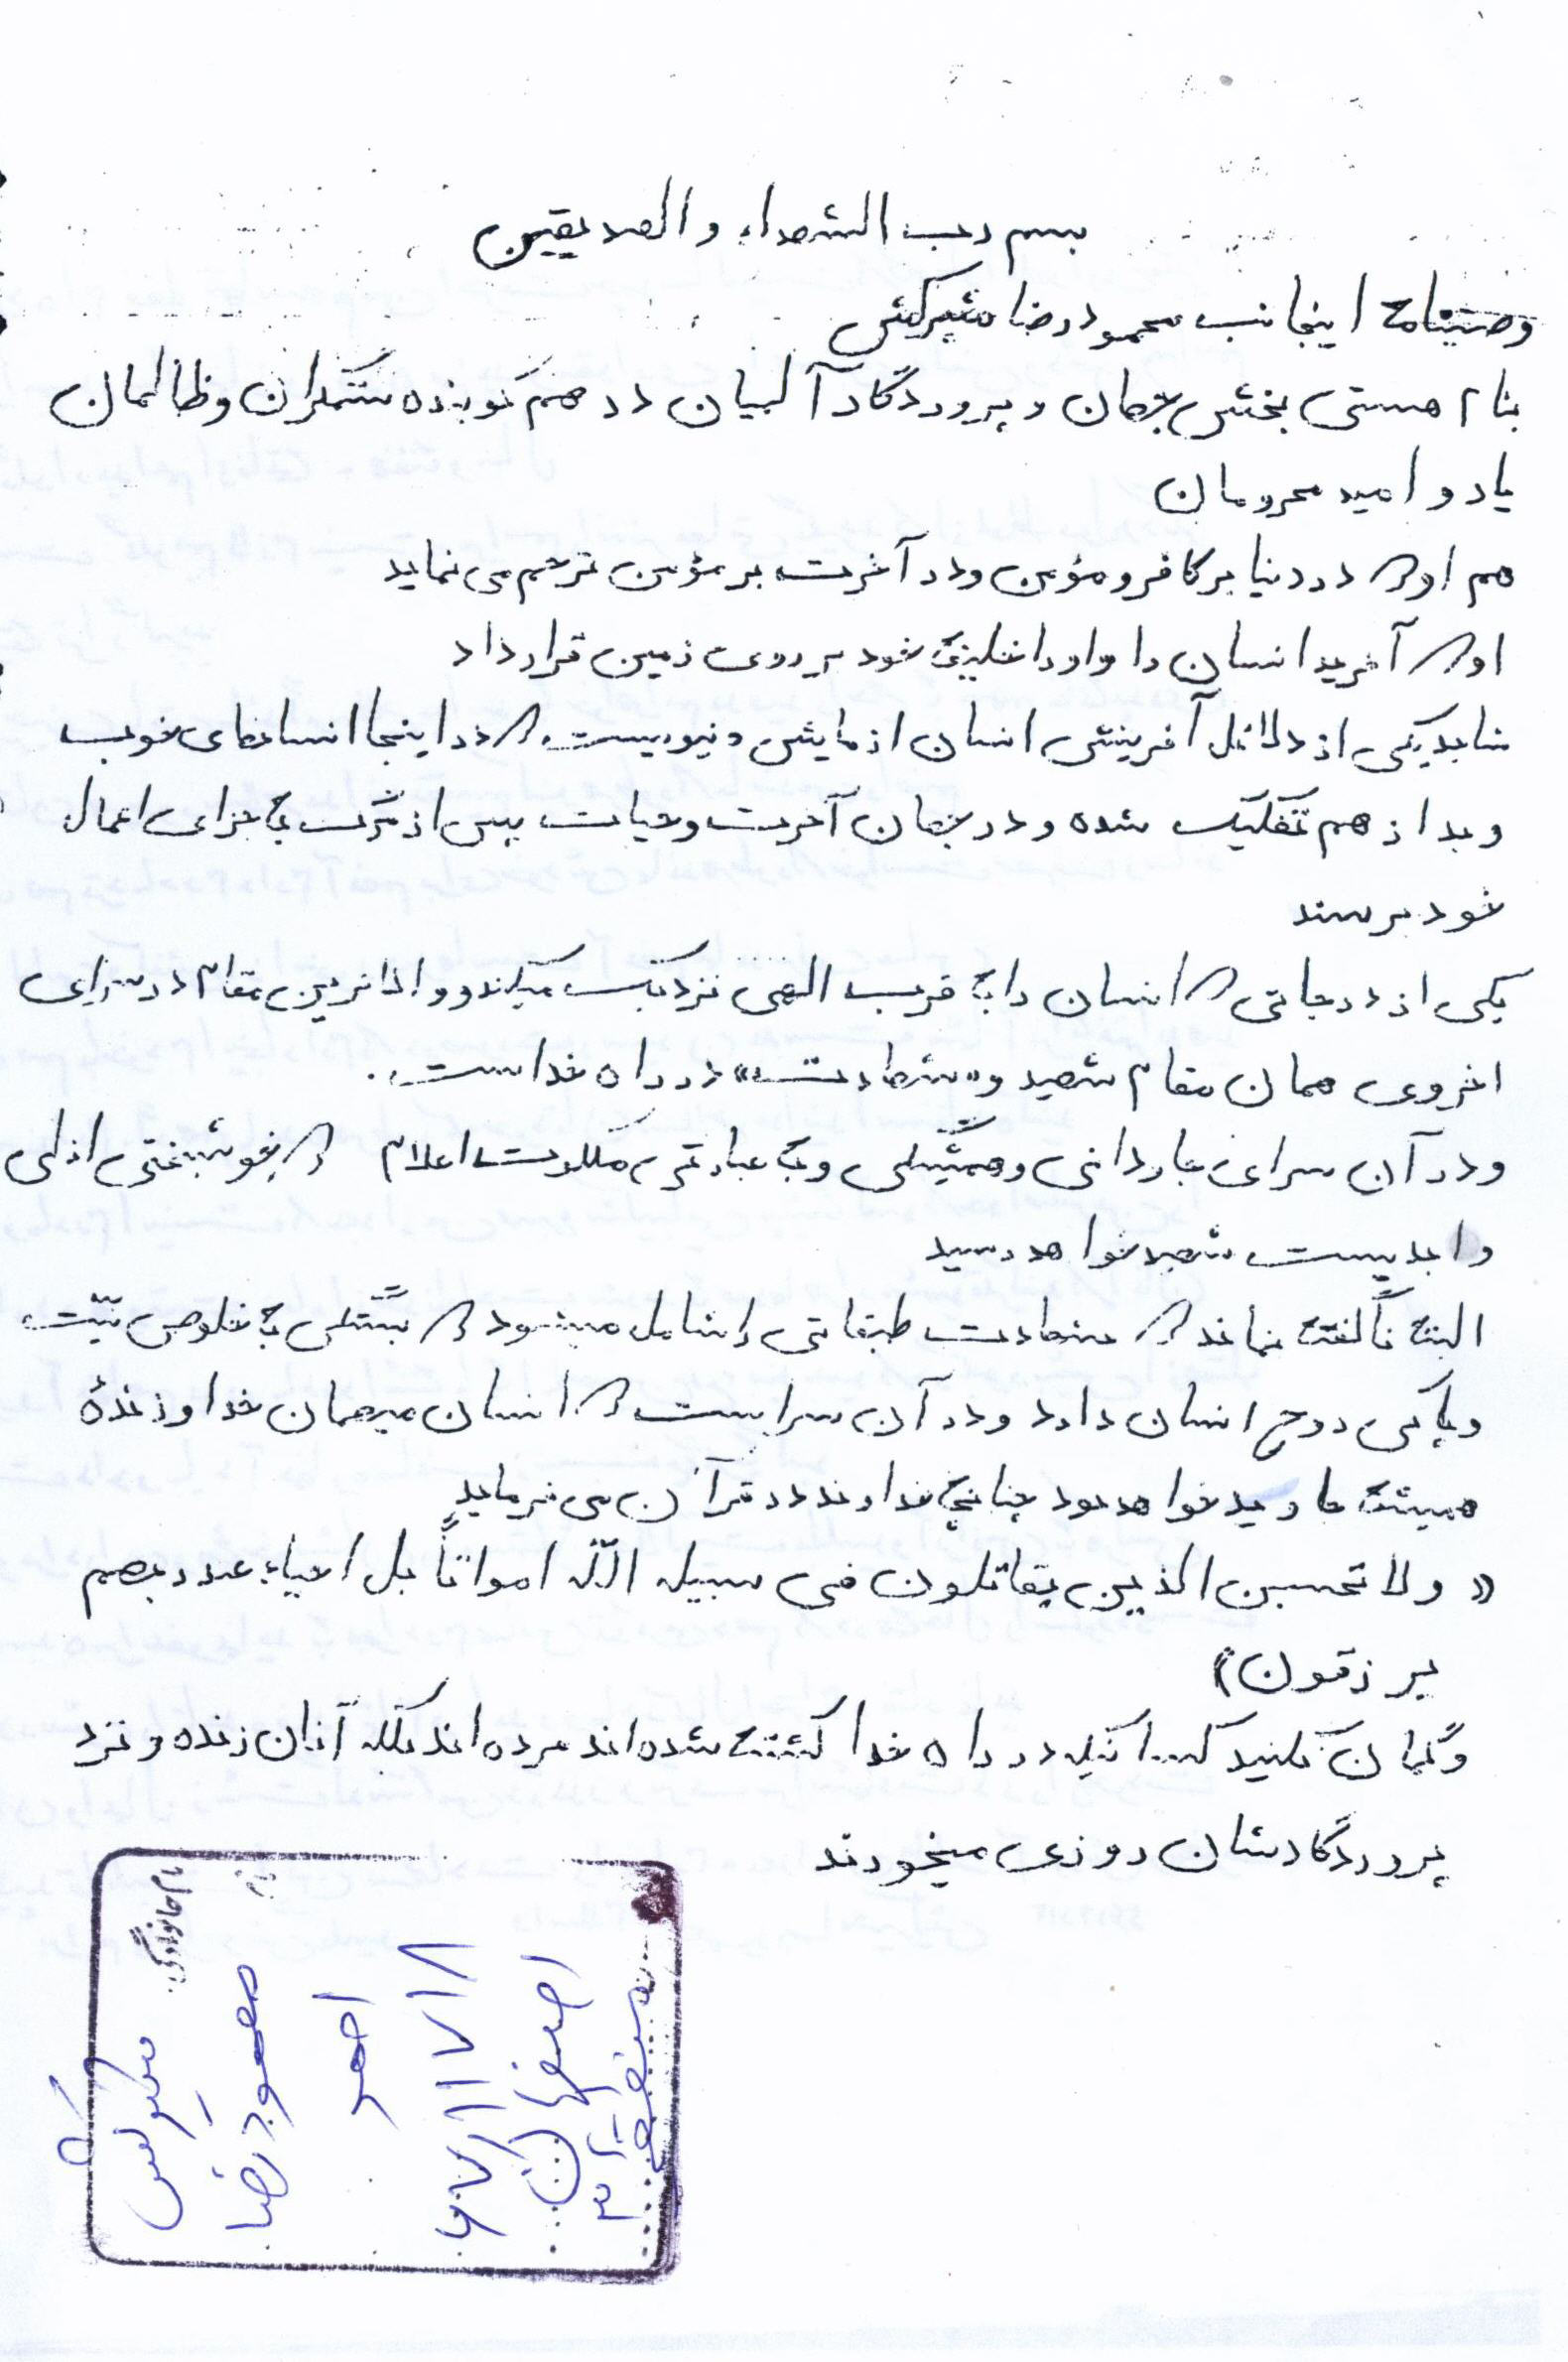 بسم رب الشهداء و الصدیقین
وصیتنامه اینجانب محمودرضا شیرکش
بنام هستی بخش جهان و پروردگار آدمیان درهم کوبنده ستمگران و ظالمان
یار و امید محرومان
هم او که در دنیا بر کافر و مؤمن و در آخرت بر مؤمن ترحم می نماید
او که آفرید انسان را و او را خلیفه خود بر روی زمین قرار داد
شاید یکی از دلائل آفرینش انسان ازمایش دنیویست که در اینجا انسانهای خوب
و بد از هم تفکیک شده و در جهان آخرت و حیات پس از مرگ به جزای اعمال
خود برسند
یکی از درجاتی که انسان را به قرب الهی نزدیک میکند و والاترین مقام در سرای
اخروی همان مقام شهید و «شهادت» در راه خداست.
و در آن سرای جاودانی و همیشگی و به عبارتی ملکوت اعلام که خوشبختی ازلی
و ابدیست شهید خواهد رسید
البته ناگفته نماند که شهادت طبقاتی را شامل میشود که بستگی به خلوص نیّت
و پاکی روح انسان دارد و در آن سراست که انسان میهمان خدا و زندهٔ
همیشه جاوید خواهد بود چنانچه خداوند در قرآن می فرماید
« ولا تحسبن الذین یقاتلون فی سبیل اللّه امواتاً بل احیاء عند ربهم
یرزقون»
و گمان نکنید کسانیکه در راه خدا کشته شده اند مرده اند بلکه آنان زنده و نزد
پروردگارشان روزی میخورند
نام خانوادگی: شیرکش
نام: محمودرضا
احمد
۶۷/۱۱۷۱۸
اصفهان